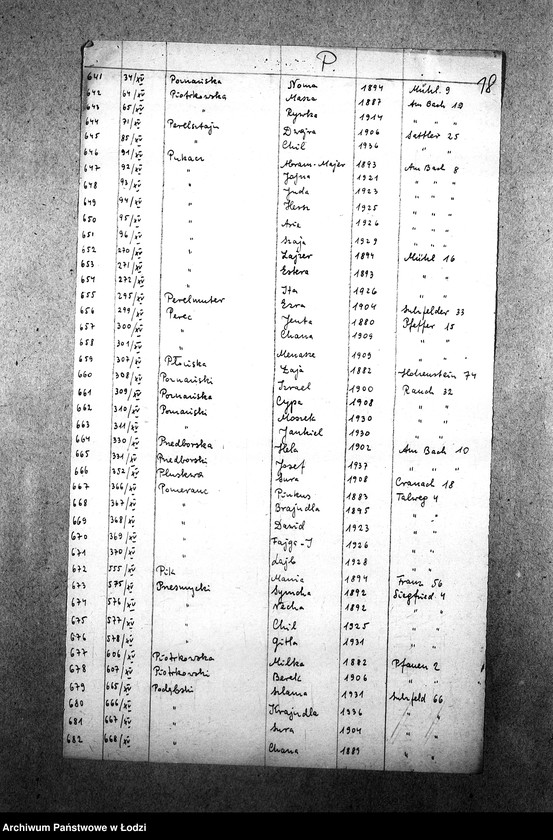 P.
18
641 34/XV Poznańska Noma 1894 Mühl. 9
642 64/XV Piotrkowska Masza 1887 Am Bach 19
643 65/XV " Rywka 1914 " " "
644 71/XV Perelsztajn Dwojra 1906 Sattler 25
645 85/XV " Chil 1936 " "
646 91/XV Pukacz Abram-Majer 1893 Am Bach 8
647 92/XV " Fajga 1921 " " "
648 93/XV " Juda 1923 " " "
649 94/XV " Hersz 1925 " " "
650 95/XV " Aria 1926 " " "
651 96/XV " Szaja 1929 " " "
652 270/XV " Lajzer 1894 Mühl 16
653 271/XV " Estera 1893 " "
654 272/XV " Ita 1926 " "
655 295/XV Perelmuter Ezra 1904 Sulzfelder 33
656 299/XV Perec Jenta 1880 Pfeffer 15
657 300/XV " Chana 1904 " "
658 301/XV " Menasze 1909 " "
659 307/XV Płońska Łaja 1882 Hohenstein 74
660 308/XV Poznański Izrael 1900 Rauch 32
661 309/XV Poznańska Cypa 1908 " "
662 310/XV Poznański Moszek 1930 " "
663 311/XV " Jankiel 1930 " "
664 330/XV Przedborska Hela 1902 Am Bach 10
665 331/XV Przedborski Josef 1937 " " "
666 352/XV Pluskwa Sura 1908 Cranach 18
667 366/XV Pomeranc Pinkus 1883 Talweg 4
668 367/XV " Brajndla 1895 " "
669 368/XV " Dawid 1923 " "
670 369/XV " Fajga-I 1926 " "
671 370/XV " Lajb 1928 " "
672 555/XV Pik Mania 1894 Franz 56
673 575/XV Przesmycki Symcha 1892 Siegfried 4
674 576/XV " Necha 1892 " "
675 577/XV " Chil 1925 " "
676 578/XV " Gitla 1931 " "
677 606/XV Piotrkowska Milka 1882 Pfauen 2
678 607/XV Piotrkowski Berek 1906 " "
679 665/XV Podębski Szlama 1931 Sulzfeld 66
680 666/XV " Krajndla 1936 " "
681 667/XV " Sura 1904 " "
682 668/XV " Chana 1889 " "
Archiwum Państwowe w Łodzi